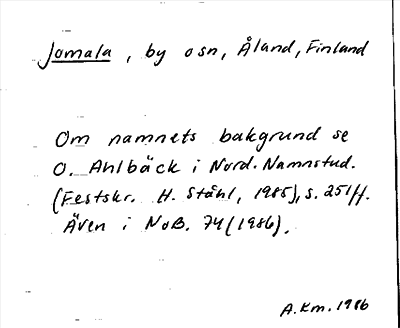 Jomala, by o sn, Åland, Finland
Om namnets bakgrund se
O. Ahlbäck i Nord. Namnstud.
(Festskr. H. Ståhl, 1985), s. 251ff.
Även i NoB. 74 (1986).
A.Km. 1986